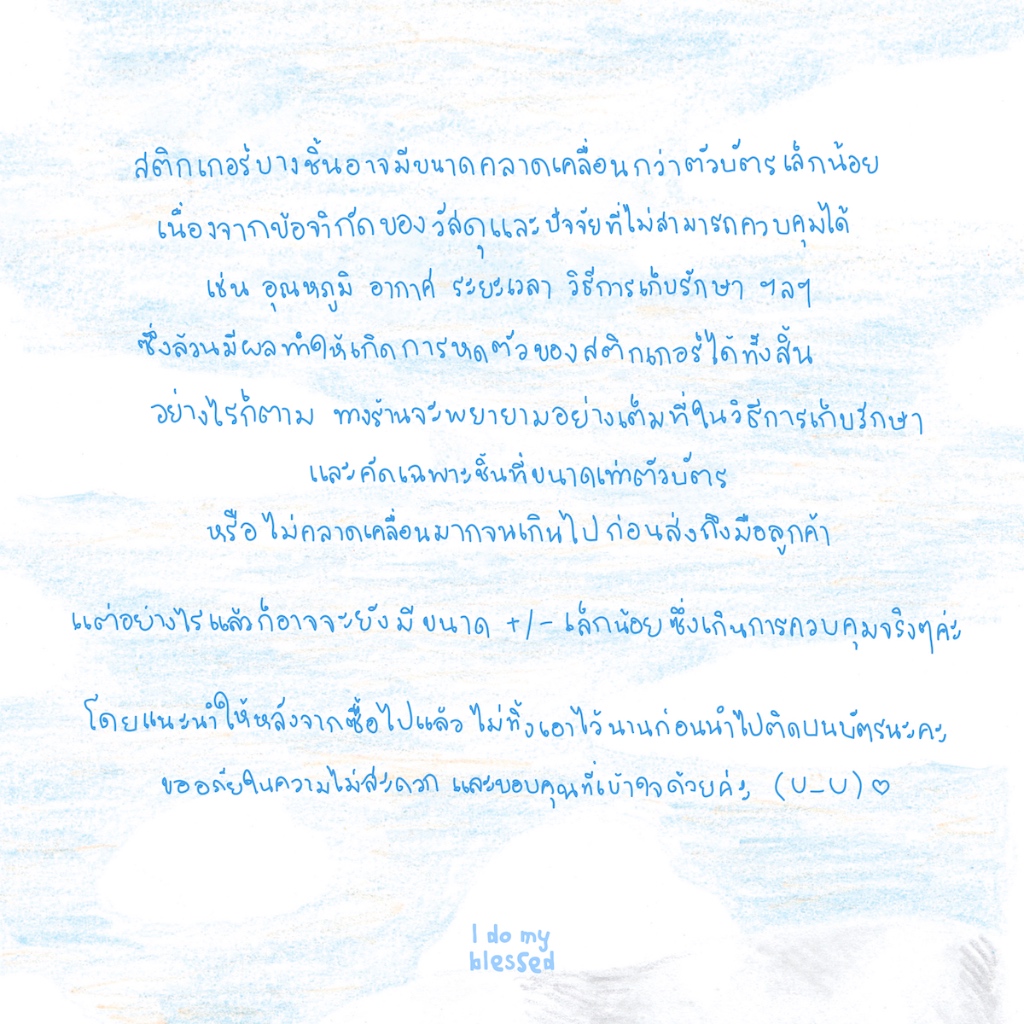 สติกเกอร์บางชิ้นอาจมีขนาดคลาดเคลื่อนกว่าตัวบัตรเล็กน้อย
เนื่องจากข้อจำกัดของวัสดุและปัจจัยที่ไม่สามารถควบคุมได้
เช่น อุณหภูมิ อากาศ ระยะเวลา วิธีการเก็บรักษา ฯลฯ
ซึ่งล้วนมีผลทำให้เกิดการหดตัวของสติกเกอร์ได้ทั้งสิ้น
อย่างไรก็ตาม ทางร้านจะพยายามอย่างเต็มที่ในวิธีการเก็บรักษา
และคัดเฉพาะชิ้นที่ขนาดเท่าตัวบัตร
หรือ ไม่คลาดเคลื่อนมากจนเกินไป ก่อนส่งถึงมือลูกค้า
แต่อย่างไรแล้วก็อาจจะยังมี ขนาด +/- เล็กน้อย ซึ่งเกินการควบคุมจริงๆค่ะ
โดยแนะนำให้หลังจากซื้อไปแล้ว ไม่ทิ้งเอาไว้นานก่อนนำไปติดบนบัตรนะคะ
ขออภัยในความไม่สะดวก และขอบคุณที่เข้าใจด้วยค่ะ (U_U)♡
I do my
blessed